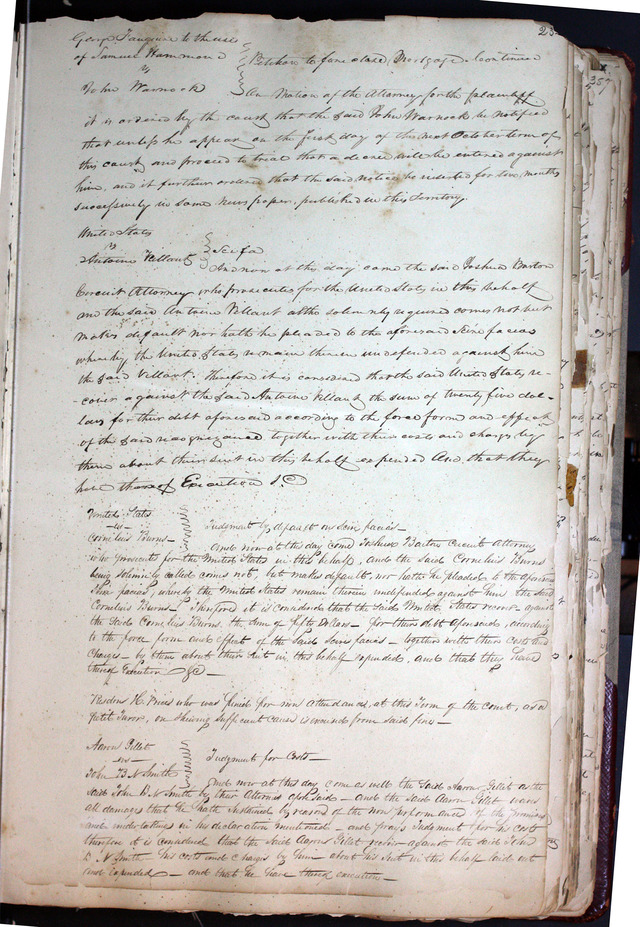 23
George Tanguine to the use
of Samuel Hammond
vs
Petition to foreclose Mortgage Continued
John Warnock
On Motion of the Attorney for the plaintiff
it is ordered by the court that the said John Warnock be notified
that unless he appear on the first day of the next October term of
this court and proceed to trial that a decree will be entered against
him, and it further ordered that the said notice be inserted for two months
successively in some News paper, published in this Territory.
United States
vs
Scifa
Antoine Villaut
And now at this day came the said Joshua Barton
Circuit Attorney who prosecutes for the United States in this behalf
and the said Antoine Villaut altho solemnly required comes not but
makes default nor hath he pleaded to the aforesaid Scire facias
whereby the United States remain therein undefended against him
the said Villaut. Therefore it is considered that the said United States re-
cover against the said Antoine Villaut the sum of twenty five dol-
lars for their debt aforesaid according to the force form and effect
of the said recognizance together with their costs and charges by
them about their suit in this behalf expended And that they
have thereof Execution &c
United States
-vs-
Judgment by default on Scire facias-
Cornelius Burns-
And now at this day come Joshua Barton Circuit Attorney
who prosecutes for the United States in this behalf, and the said Cornelius Burns
being solemnly called comes not, but makes default, nor hath he pleaded to the aforesaid
Scire facias, whereby the United States remain therein undefended against him the said
Cornelius Burns- Therefore it is considered that the said United States recover against
the said Cornelius Burns the sum of fifty Dollars- for their debt aforesaid, according
to the force form and effect of the said Scire facias- together with their costs and
charges- by them about their suit in this behalf expended, and that they have
thereof Execution &c-
H. Prices who was fined for non attendance, at this Term of the court, as a
Petit Juror, on shewing sufficient cause is from said fine-
Aaron Gillet
-vs-
Judgment for Costs-
John B N Smith
And now at this day come as well the said Aaron Gillet as the
said John B. N Smith by their Attornies aforesaid- and the said Aaron Gillet
all damages that he hath sustained by reason of the non performance of the promises
and undertakings in his declaration mentioned- and prays Judgment for his costs
therefore it is considered that the said Aaron Gillet recover against the said John
B. N Smith his costs and charges by him about his suit in this behalf laid out
and expended- and that he have thereof execution-